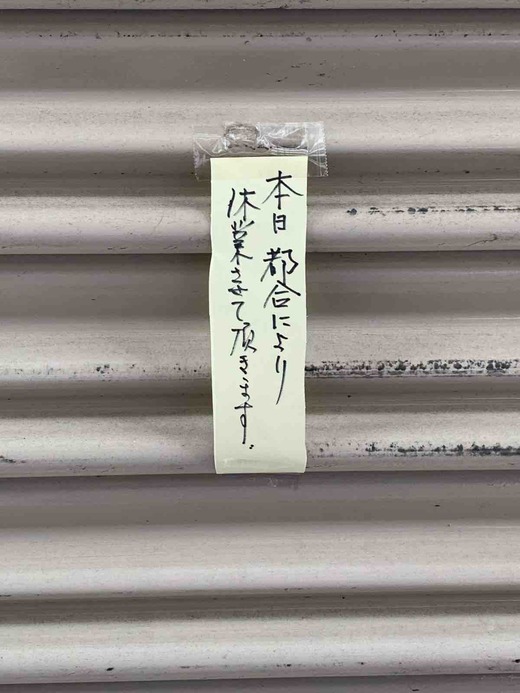 本日 都合により
休業させて頂きます。